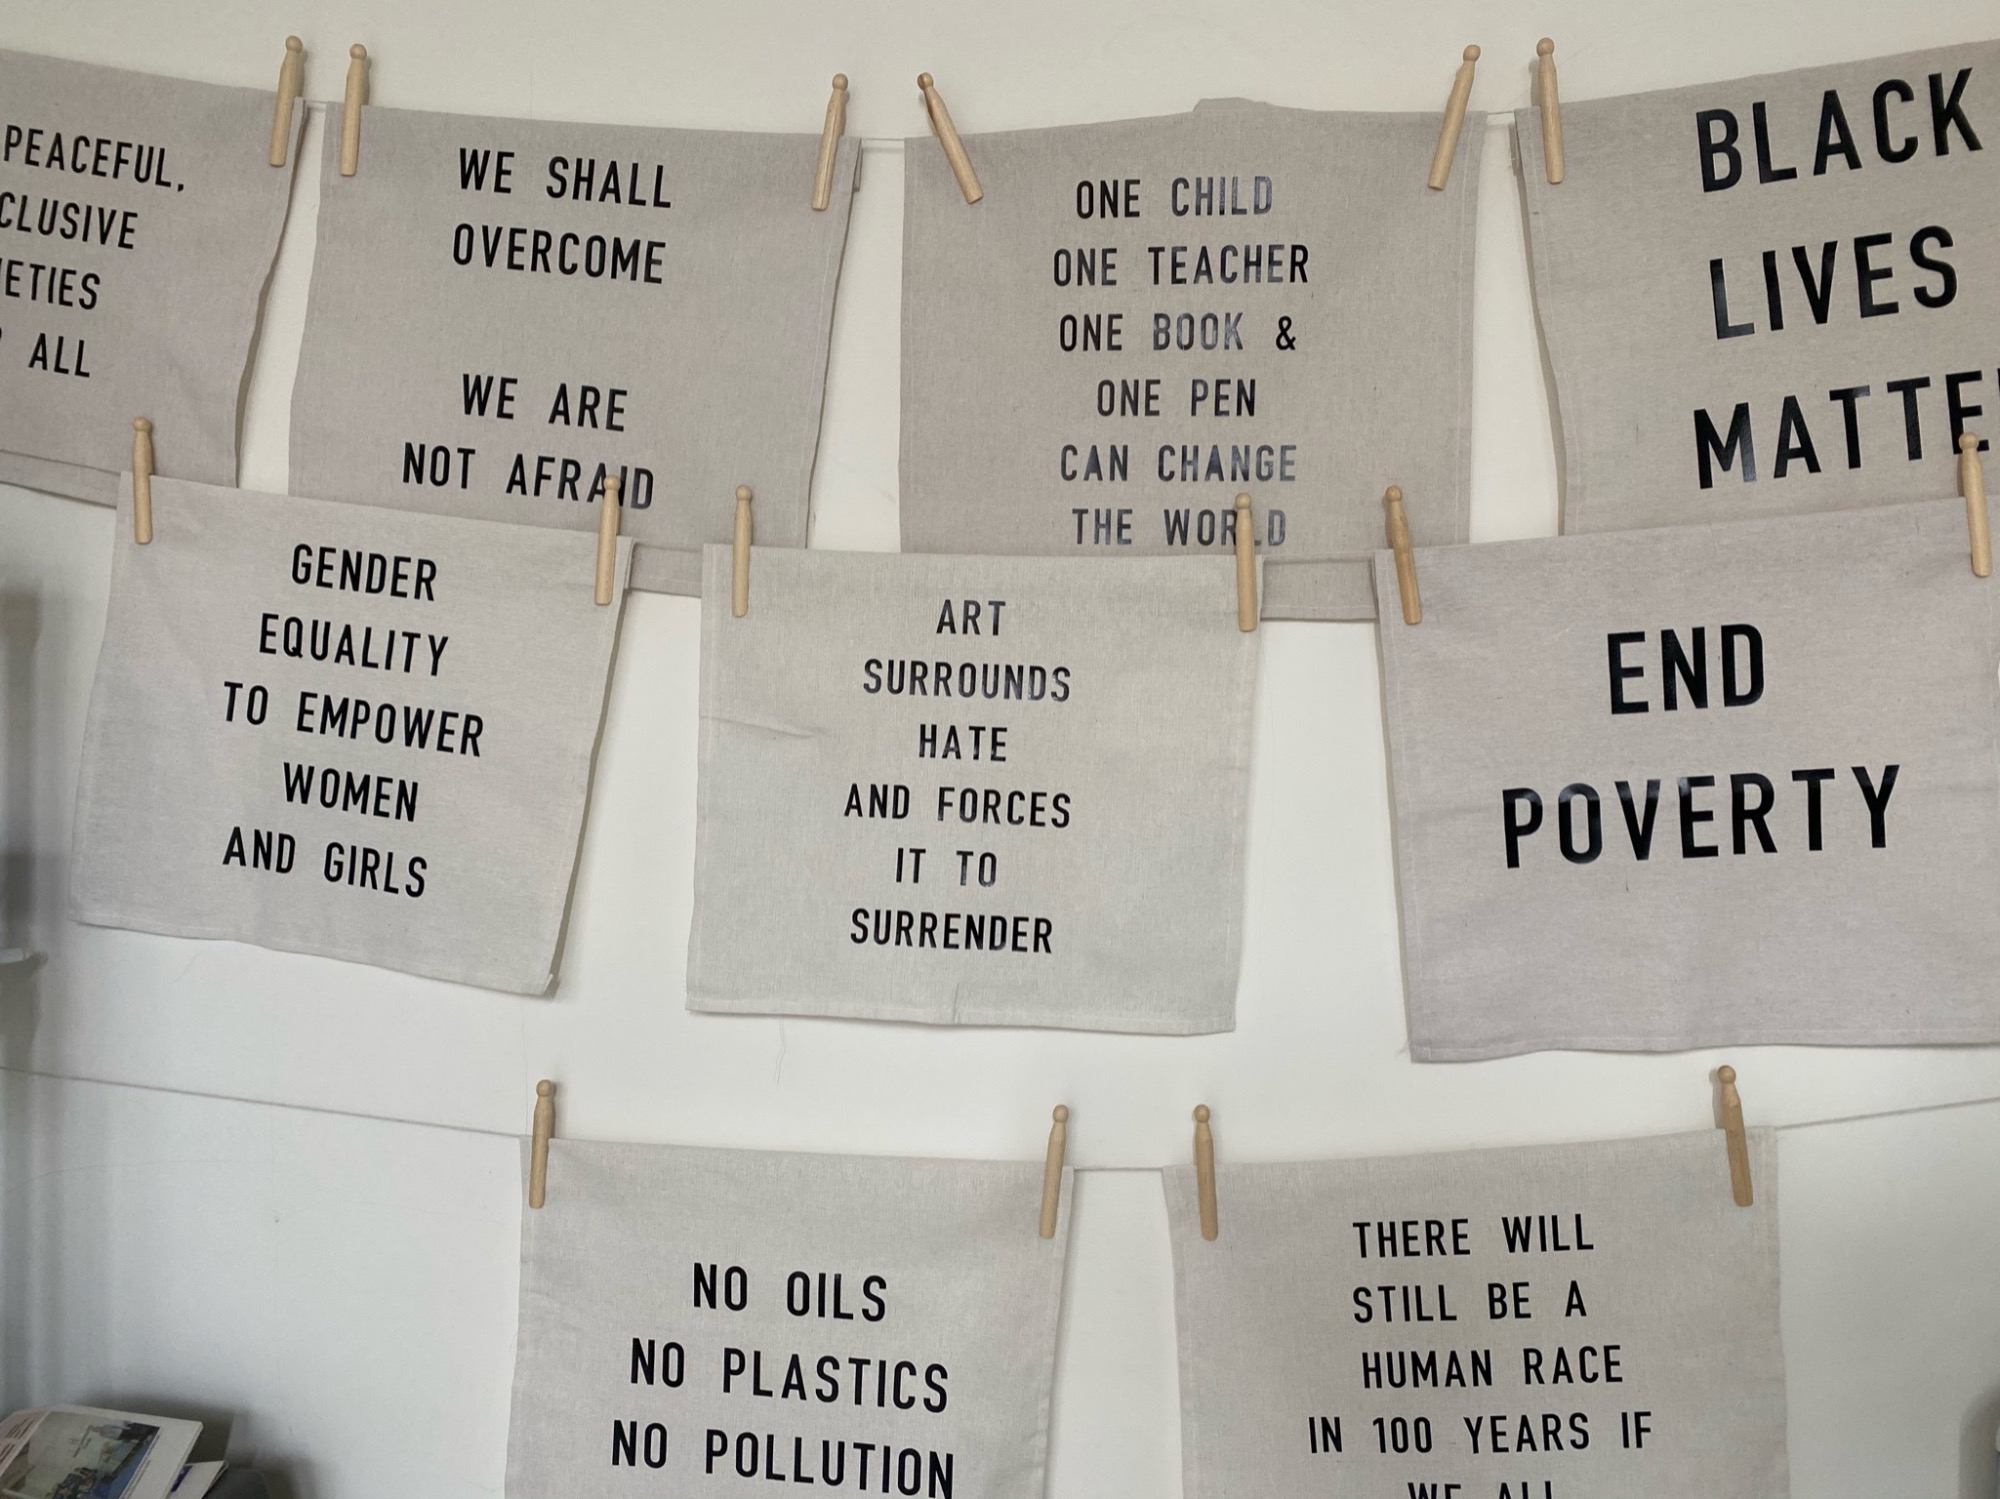 PEACEFUL,
ALL
WE SHALL
OVERCOME
WE ARE
NOT AFRAID
ONE CHILD
ONE TEACHER
ONE BOOK &
ONE PEN
CAN CHANGE
THE WORLD
BLACK
LIVES
MATTE
GENDER
EQUALITY
TO EMPOWER
WOMEN
AND GIRLS
ART
SURROUNDS
HATE
AND FORCES
IT TO
SURRENDER
END
POVERTY
NO OILS
NO PLASTICS
NO POLLUTION
THERE WILL
STILL BE A
HUMAN RACE
IN 100 YEARS IF
WE ALL